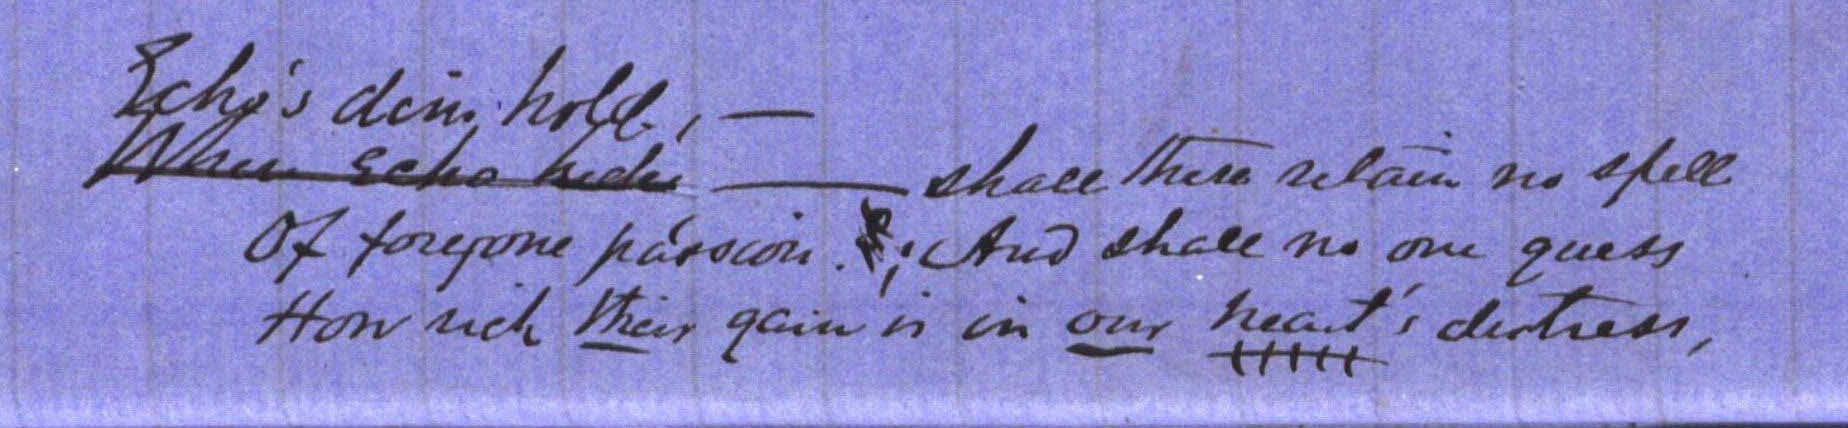 Echo's dim hold, —
When Echo hides — shall these retain no spell
Of foregone passion. ; And shall no one guess
How rich their gain is in our heart's distress,